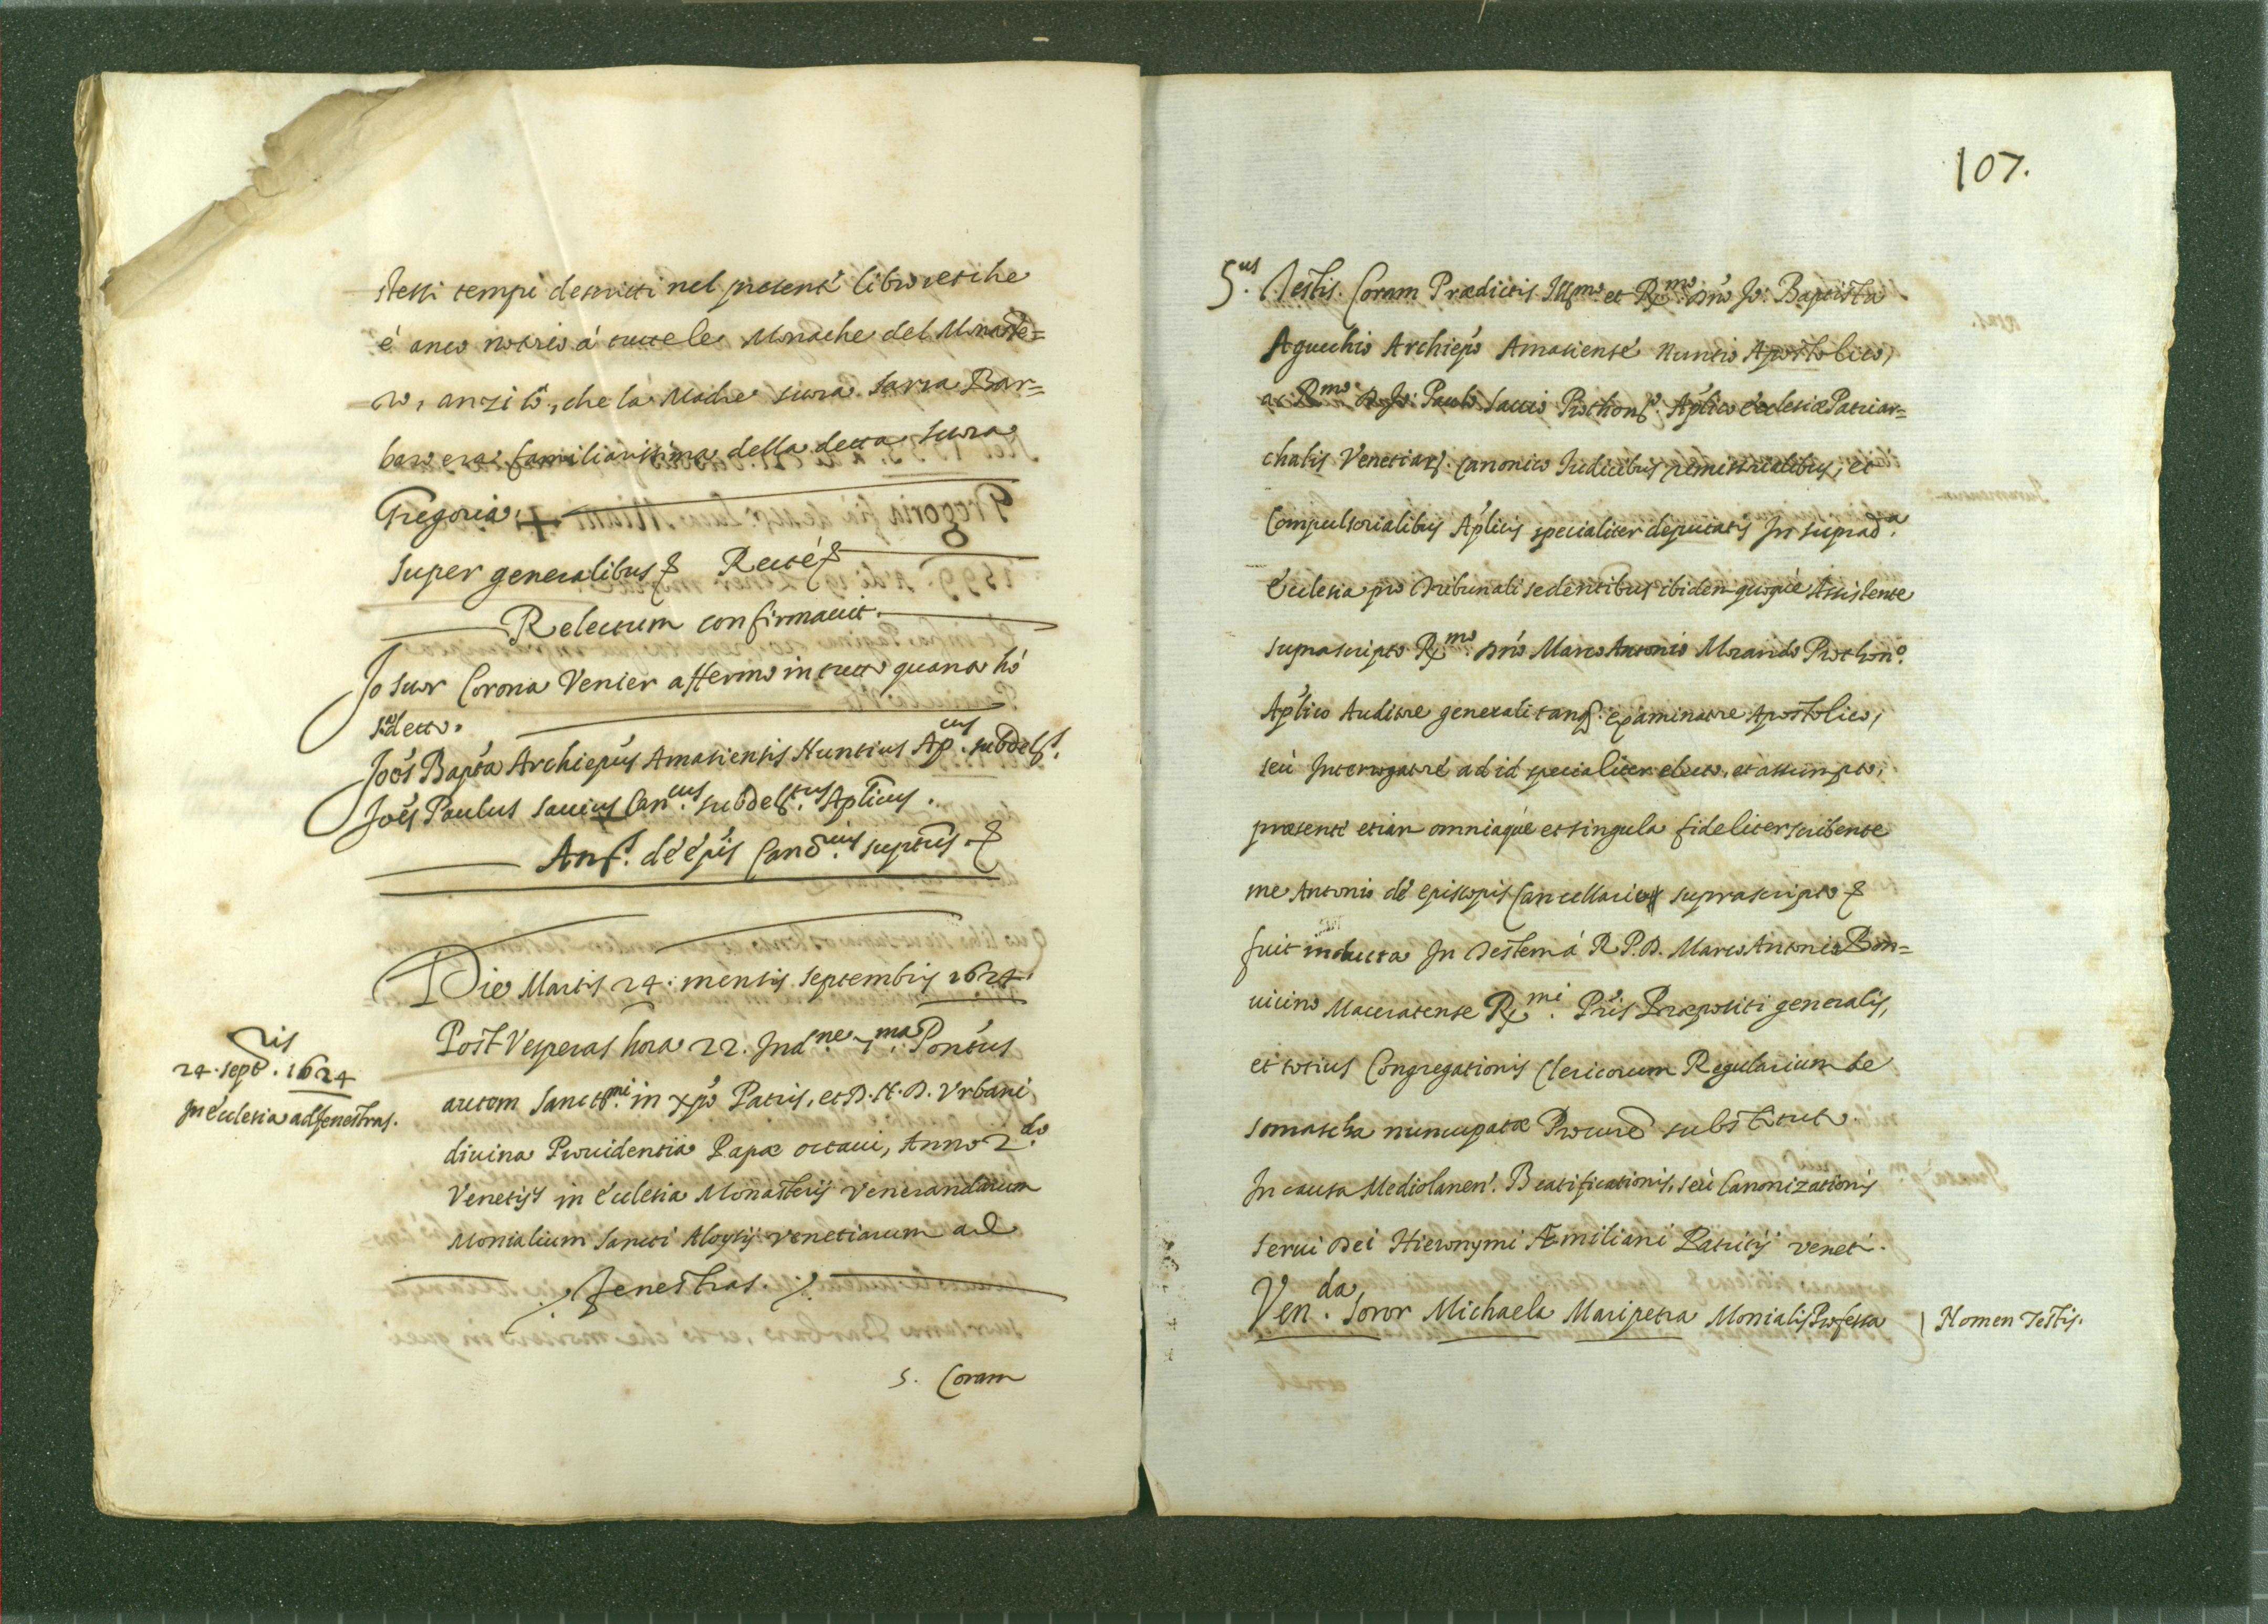 stessi tempi descritti nel presente libro et che
é anco notorio á tutte le Monache del Monaste=
ro, anzi io, che la Madre Suora Sarra Bar=
baro era familiarissima della detta Suora
Gregoria. +
Super generalibus & Recté &
Relectum confirmauit.
Io Suor Corona Venier affermo in tutto quanto hó
detto.
Joẽs Bapta Archiepus Amasiensis Nuntius Ap.cus subdel.
Joẽs Paulus Sauius Can.cus subdel.tus Aplicus.
Ant. dé épis Canc. suptus. &
Die Martis 24. mensis Septembris 1624.
24. Septris. 1624
In écclesia ad fenestras.
Post Vesperas hora 22. Ind.ne 7.ma Pontus
autem Sanct.mi in xpo Patris, et D. N. D. Vrbani
diuina Prouidentia Papæ octaui, Anno 2.do
Venetijs in écclesia Monasterij Venerandarum
Monialium Sancti Aloysij Venetiarum ad
fenestras.
5. Coram
107.
5.us Testis. Coram Prædictis Illmo. et R.mo Dno Jo: Baptista
Agucchio Archiepo Amasiense Nuntio Apostolico,
ac R.mo D. Jo: Paulo Sauio Prothon. Aplico écclesiæ Patriar=
chalis Venetiar. Canonico Iudicibus remissorialibus, et
Compulsorialibus Aplicis specialiter deputatis In suprad.a
écclesia pro tribunali sedentibus ibidem quoque Assistente
suprascripto R.mo Dno Marco Antonio Morando Prothon.o
Aplico Auditore generali tanq. examinatore Apostolico,
seù Interrogatore ad id specialiter electo, et assumpto,
præsente etiam omniaque et singula fideliter scribente
me Antonio dé episcopis Cancellario suprascripto &
fuit inducta In Testem á R. P. D. Marco Antonio Bon=
uicino Maceratense R.mi Pris Præpositi generalis,
et totius Congregationis Clericorum Regularium de
somascha nuncupatæ Procure substituto.
In causa Mediolanen. Beatificationis, seù Canonizationis
serui Dei Hieronymi Æmiliani Patritij Veneti.
Ven.da Soror Michaela Maripetra Monialis Professa
Nomen Testis.